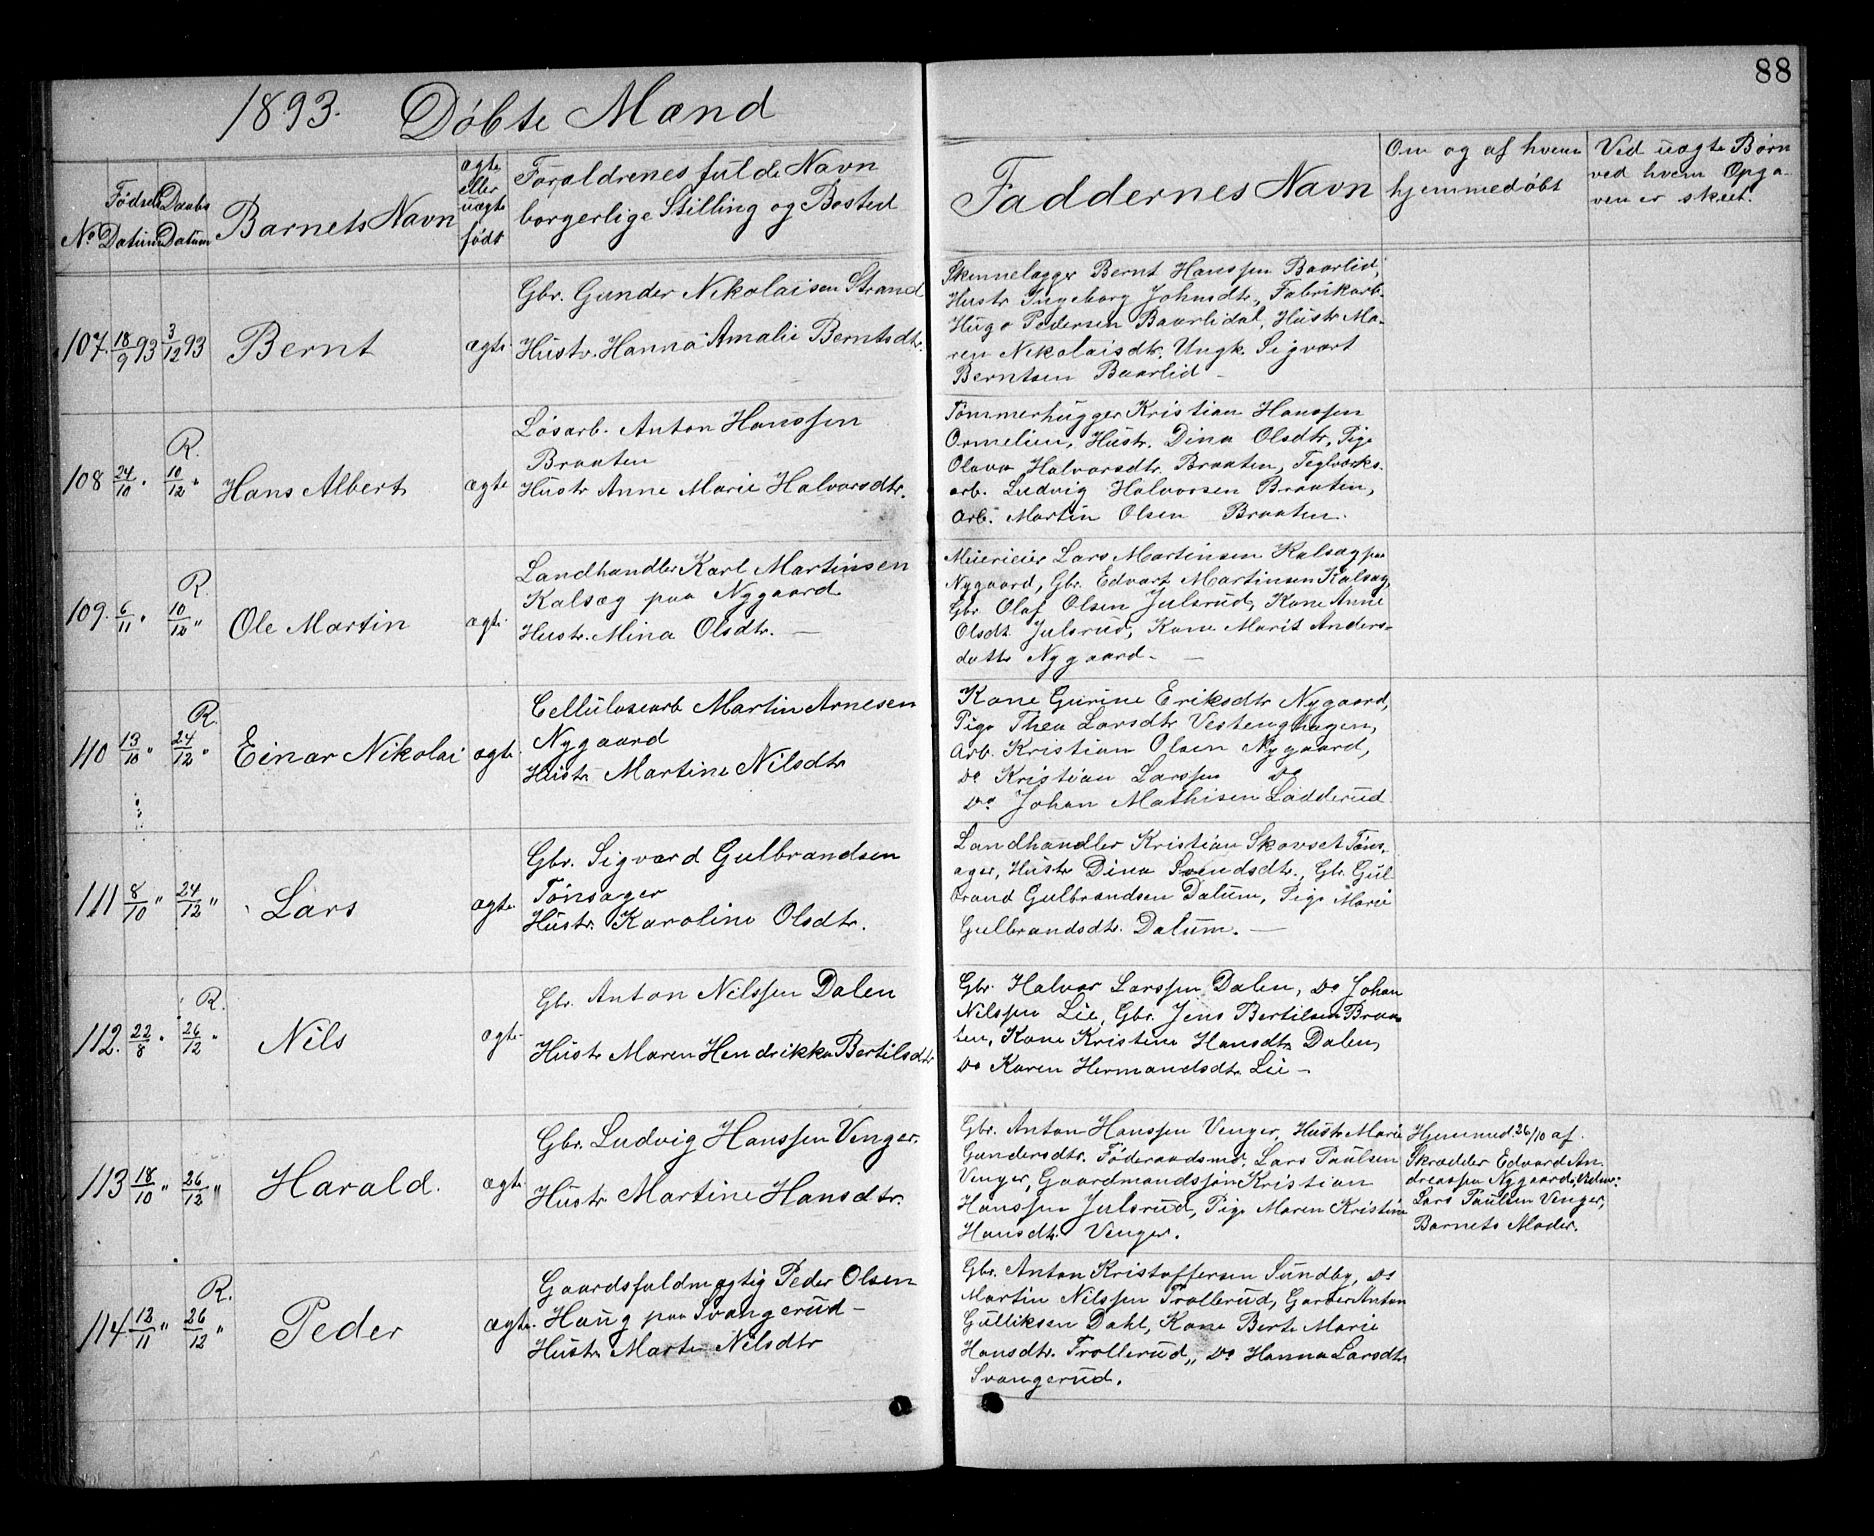 88
1893. Døbte Mænd
No
Fødsels Datum
Daabs Datum
Barnets Navn
ægte eller uægte født
Forældrenes fulde Navn
borgerlige Stilling og Bosted
Faddernes Navn
Om og af hvem
hjemmedøbt
Ved uægte Børn
ved hvem Opga-
ven er skeet.
107. 18/9 93 3/12 93 Bernt ægte
Gbr. Gunder Nikolaisen Strand
Hustr. Hanna Amalie Berntsdtr.
Skinnelægger Bernt Hanssen Baarlid,
Hustr Ingeborg Johnsdtr, Fabrikarb.
Hugo Pedersen Baarlidal, Hustr Ma-
ren Nikolaisdtr. Ungk. Sigvart
Berntsen Baarlid -
R.
108 24/10 " 10/12 " Hans Albert ægte
Løsarb. Anton Hanssen
Braaten
Hustr Anne Marie Halvorsdtr.
Tømmerhugger Kristian Hanssen
Ormelien, Hustr. Dina Olsdtr, Pige
Olava Halvorsdtr. Braaten, Teglværks-
arb. Ludvig Halvorsen Braaten,
Arb. Martin Olsen Braaten.
R.
109. 6/11 " 10/12 " Ole Martin ægte
Landhandler Karl Martinsen
Kalsæg paa Nygaard
Hustr. Mina Olsdtr. —
Meierieier Lars Martinsen Kalsæg paa
Nygaard, Gbr. Edvart Martinsen Kalsæg,
Gbr. Olaf Olsen Julsrud, Kone Anne
Olsdt Julsrud, Kone Marit Anders-
datter Nygaard. —
R.
110 13/10 " 24/12 " Einar Nikolai ægte
Cellulosearb Martin Arnesen
Nygaard
Hustr Martine Nilsdtr
Kone Gurine Eriksdtr Nygaard,
Pige Thea Larsdtr Vestenghagen,
Arb. Kristian Olsen Nygaard,
Do Kristian Larssen Do
Do Johan Mathisen Ladderud
111 8/10 " 24/12 " Lars ægte
Gbr. Sigvard Gulbrandsen
Tønsager
Hustr. Karoline Olsdtr.
Landhandler Kristian Skovset Tøns-
ager, Hustr Dina Svendsdtr., Gbr. Gul
brand Gulbrandsen Dalum, Pige Marie
Gulbrandsdtr. Dalum. —
R.
112. 22/8 " 26/12 " Nils ægte
Gbr. Anton Nilssen Dalen
Hustr Maren Hendrikka Bertilsdtr
Gbr. Halvor Larssen Dalen, Do Johan
Nilssen Lie, Gbr. Jens Bertilsen Braa-
ten, Kone Kristine Hansdtr Dalen,
Do Karen Hermandsdtr. Lie -
113 18/10 " 26/12 " Harald. ægte
Gbr. Ludvig Hanssen Venger.
Hustr Martine Hansdtr.
Gbr. Anton Hanssen Venger, Hustr Marie
Gundersdtr. Føderaadsmd. Lars Paulsen
Venger, Gaardmandssøn Kristian
Hanssen Julsrud, Pige Maren Kristine
Hansdtr. Venger.
Hjemmed. 26/10 af
Skrædder Edvard An-
dreassen Nygaard, Vidner:
Lars Paulsen Venger,
Barnets Moder.
R.
114 12/11 " 26/12 " Peder ægte.
Gaardsfuldmægtig Peder Olsen
Haug paa Svangerud -
Hustr. Marte Nilsdtr
Gbr. Anton Kristoffersen Sundby, Do
Martin Nilssen Trollerud, Garver Anton
Gulliksen Dahl, Kone Berte Marie
Hansdtr. Trollerud,, Do Hanna Larsdtr
Svangerud.